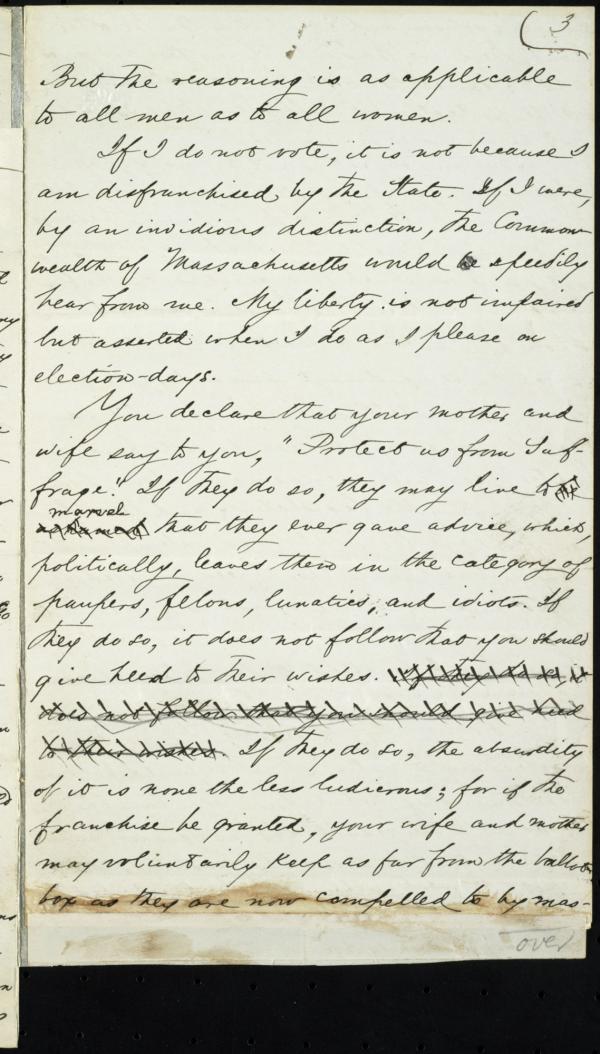 3
But the reasoning is as applicable
to all men as to all women.
If I do not vote, it is not because I
am disfranchised by the State. If I were,
by an invidious distinction, the Common-
wealth of Massachusetts would be speedily
hear from me. My liberty is not impaired
but asserted when I do as I please on
election-days.
You declare that your mother and
wife say to you, "Protect us from Suf-
frage." If they do so, they may live to
marvel
that they ever gave advice, which,
politically, leaves them in the category of
paupers, felons, lunatics, and idiots. If
they do so, it does not follow that you should
give heed to their wishes. If they do so, it
does not follow that you should give heed
to their wishes. If they do so, the absurdity
of it is none the less ludicrous; for if the
franchise be granted, your wife and mother
may voluntarily keep as far from the ballot
box as they are now compelled to by mas-
over